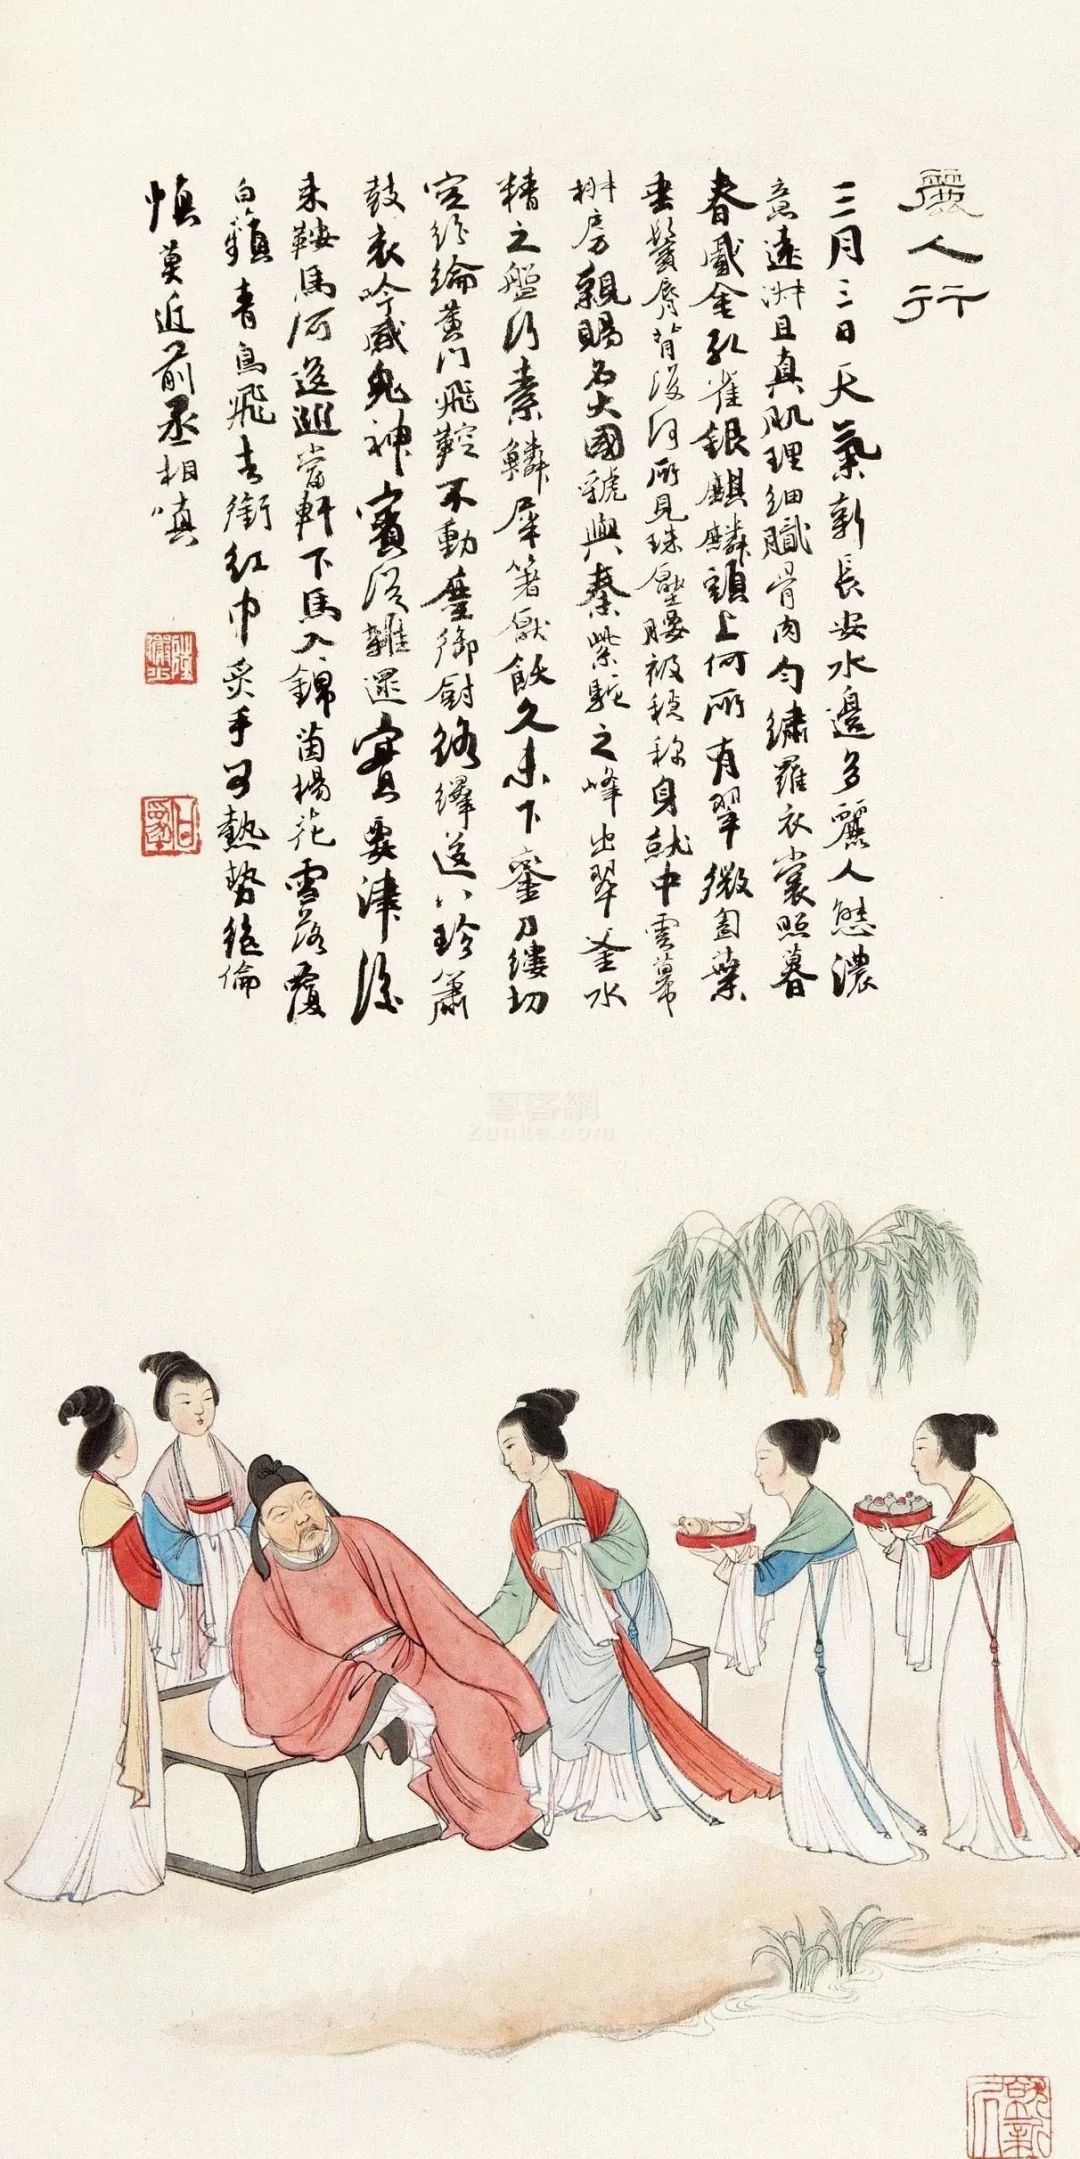 麗人行
三月三日天氣新長安水邊多麗人態濃
意遠淑且真肌理細膩骨肉勻繡羅衣裳照暮
春蹙金孔雀銀麒麟頭上何所有翠微㔩葉
垂鬢脣背後何所見珠壓腰衱穩稱身就中雲幕
椒房親賜名大國虢與秦紫駝之峰出翠釜水
精之盤行素鱗犀箸厭飫久未下鑾刀縷切
空紛綸黃門飛鞚不動塵御廚絡繹送八珍簫
鼓哀吟感鬼神賓從雜遝實要津後
來鞍馬何逡巡當軒下馬入錦茵楊花雪落覆
白蘋青鳥飛去銜紅巾炙手可熱勢絕倫
慎莫近前丞相嗔
尊客網
Zunke.com